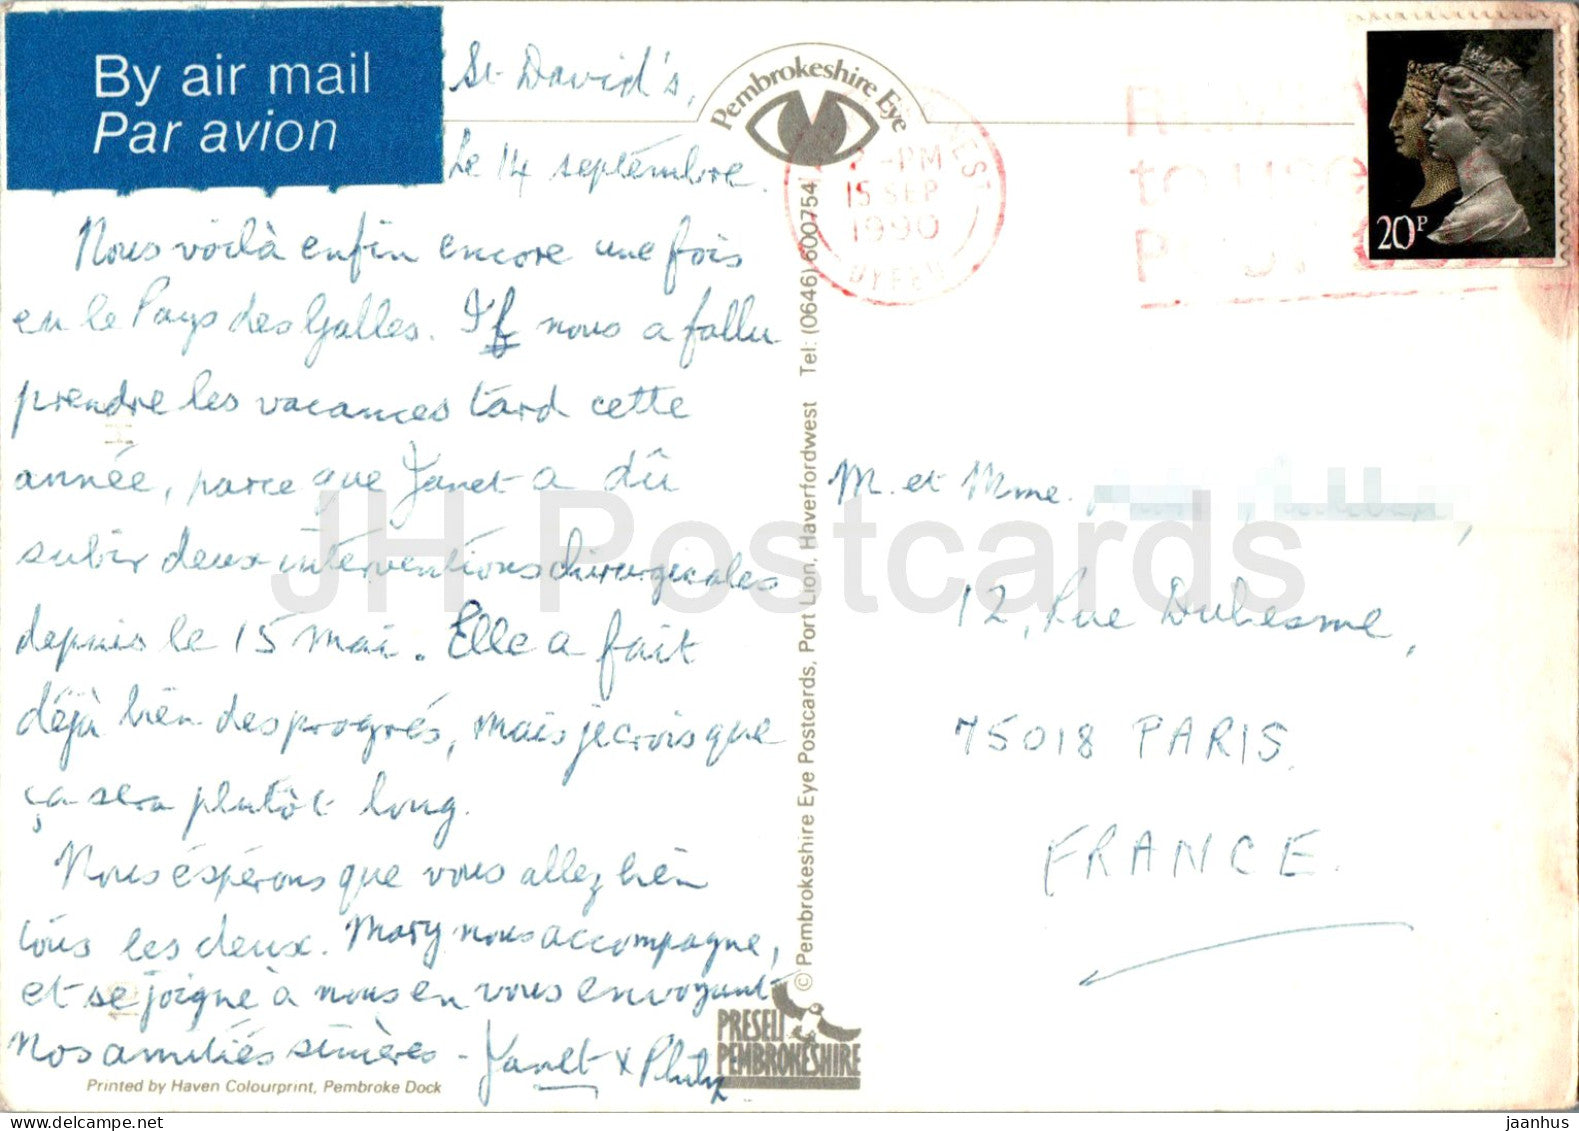 By air mail
Par avion
St David's,
Le 14 septembre.
Nous voilà enfin encore une fois
en le Pays des Galles. Il nous a fallu
prendre les vacances tard cette
année, parce que Janet a dû
subir deux interventions chirurgicales
depuis le 15 mai. Elle a fait
déjà bien des progrés, mais je crois que
ça sera plutôt long.
Nous éspérons que vous allez bien
tous les deux. Mary nous accompagne,
et se joigne à nous en vous envoyant
nos amitiés sincères - Janet & Philip
Printed by Haven Colourprint, Pembroke Dock
Pembrokeshire Eye
© Pembrokeshire Eye Postcards, Port Lion, Haverfordwest Tel: (0646) 600754
PRESELI
PEMBROKESHIRE
-PM
15 SEP
1990
DYFED
to use
20P
M. et Mme.
12, Rue Duhesme,
75018 PARIS.
FRANCE.
JH Postcards
jaanhus